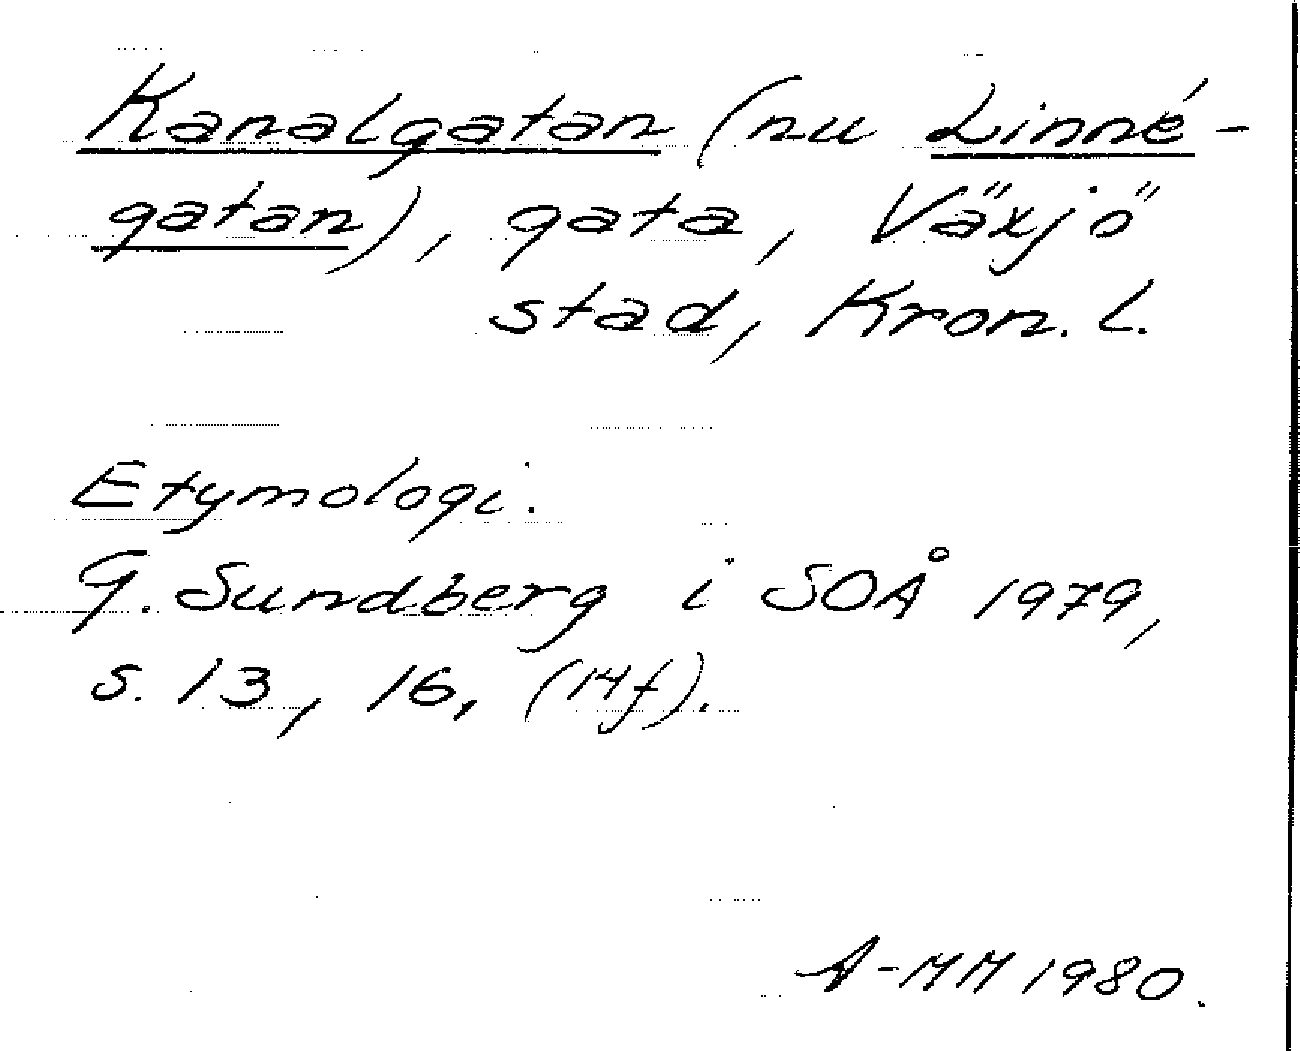 Kanalgatan (nu Linné-
gatan), gata, Växjö
stad, Kron. l.
Etymologi.
G. Sundberg i SOÅ 1979,
s. 13, 16, (14f).
A-MM 1980.